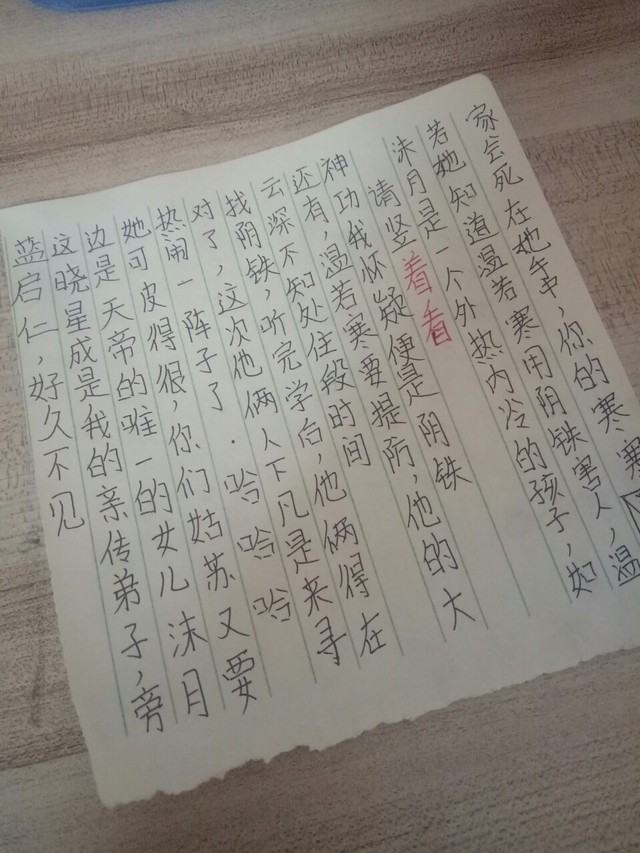 蓝启仁,好久不见
这晓星成是我的亲传弟子,旁
边是天帝的唯一的女儿沫月
她可皮得很,你们姑苏又要
热闹一阵子了.哈哈哈
对了,这次他俩人下凡是来寻
找阴铁,听完学后,他俩得在
云深不知处住段时间
还有,温若寒要提防,他的大
神功我怀疑便是阴铁
请竖着看
沫月是一个外热内冷的孩子,如
若她知道温若寒用阴铁害人,温
家会死在她手中,你的寒寒